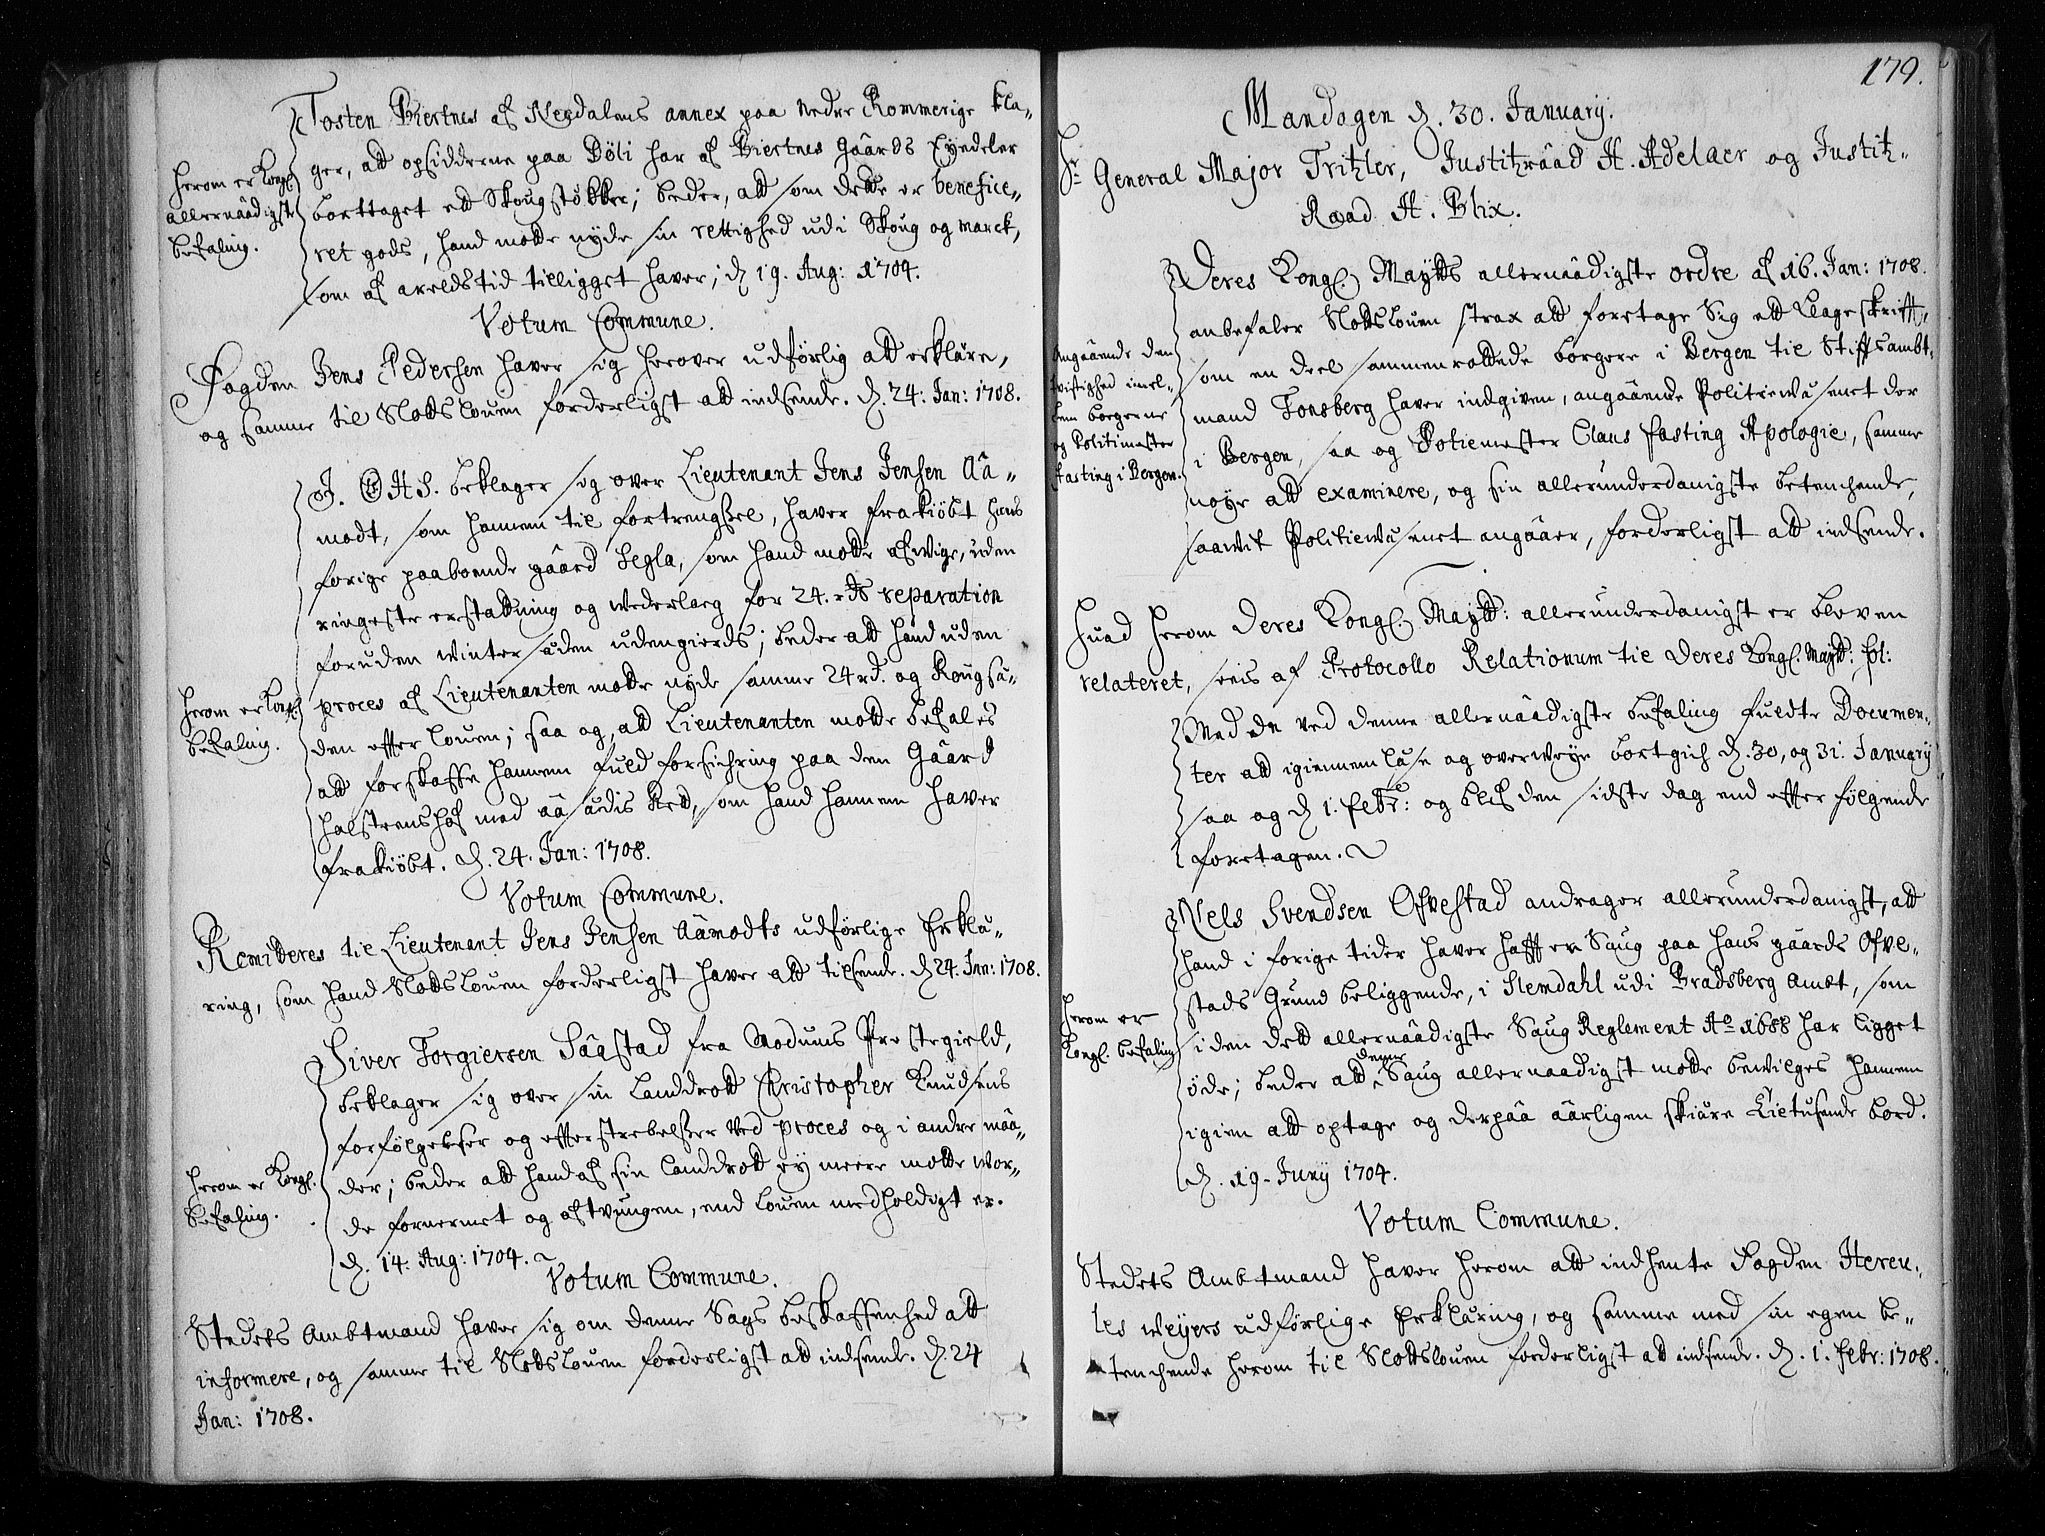 Tosten Biertnes af Neßdalens annex paa Nedre Rommerige kla-
ger, att opsidderne paa Döli har af Biertnes Gaards Eyedeler
borttaget ett Skougstökker; beder, att som dette er benefice-
ret gods, hand motte nyde sin rettighed udi Skoug og marck,
som af areldstid tilligget haver; d. 19. Aug: 1704.
herom er Kongl.
allernaadigste
befaling.
Votum Commune.
Fogden Jens Pedersen haver sig herover udförlig att erklære,
og samme til Slottsloven forderligst att indsende. d. 24. Jan: 1708.
beklager sig over Lieutenant Jens Jensen Aa-
modt, som hannem til fortrengßel, haver frakiöbt hans
forige paaboende gaard Segla, som hand motte afvige, uden
ringeste erstattning og wederlaeg for 24. rds reparation
foruden winter sæden udengierds; beder att hand uden
proces af Lieutenanten motte nyde samme 24 rd. og Rougsæ-
den effter louen; saa og, att Lieutenanten motte befales
att forskaffe hannem fuld forsichring paa den Gaard
Holstrenshof med aasædis Rett, som hand hannem haver
frakiöbt. d. 24. Jan: 1708.
herom er Kongl.
befaling.
Votum Commune.
Remitteres til Lieutenant Jens Jensen Aamodts udförlige Erklæ-
ring, som hand Slottsloven forderligst haver att tilsende. d. 24. Jan: 1708.
Siver Torgiersen Saastad fra Modums Prestegield,
beklager sig over sin Landdrott Christopher Knudsens
forfölgelser og effterstrebelßer ved proces og i andre maa-
der; beder att hand af sin Landdrott ey meere motte wor-
de fornermet og aftvungen, end Louen medholdigt er.
d. 14. Aug: 1704.
herom er Kongl.
befaling.
Votum Commune.
Stedets Ambtmand haver sig om denne Sags beskaffenhed att
informere, og samme til Slottsloven forderligst att indsende. d. 24
Jan: 1708.
179.
Mandagen d. 30. January.
Hr. General Major Tritzler, Justitzraad H. Adelaer og Justitz-
Raad H. Blix.
Deres Kongl. Maytts allernaadigste ordre af 16. Jan: 1708.
anbefaler Slottslouen strax att foretage Sig ett Klageskrifft,
som en deel sammenrottede borgere i Bergen til Stifftsambt-
mand Tonsberg haver indgiven, angaaende Politiewæsenet der
i Bergen, saa og Potiemester Claus Fasting Apologie, samme
nöye att examinere, og sin allerunderdanigste betenchende,
saawit Politiewæsenet angaaer, forderligst att indsende.
Angaaende den
tvistighed imel-
lem borgerne
og Politimester
Fasting i Bergen.
Huad herom Deres Kongl. Maytt: allerunderdanigst er bleven
relateret, seis af Protocollo Relationum til Deres Kongl. Maytt: fol:
Med de ved denne allernaadigste befaling fuldte Documen-
ter att igiennemlæse og overweye bortgich d. 30, og 31. January
saa og d. 1. Febr: og blef den sidste dag end effter fölgende
foretagen.
Nels Svendsen Ofvestad andrager allerunderdanigst, att
hand i forige tider haver hafft en Saug paa hans gaards Ofve-
stads Grund beliggende, i Slemdahl udi Bradsberg Ambt, som
siden dett allernaadigste Saug Reglement Ao 1688 har ligget
öde; beder att denne Saug allernaadigst motte bewilges hannem
igien att optage og derpaa aarligen skiære tietusende bord.
d. 19. Juny 1704.
herom er
Kongl. befaling
Votum Commune.
Stedets Ambtmand haver herom att indhente Fogden Hercu-
les Weyers udförlige Erklæring, og samme med sin egen be-
tenchende herom til Slottslouen forderligst at indsende. d. 1. Febr: 1708.